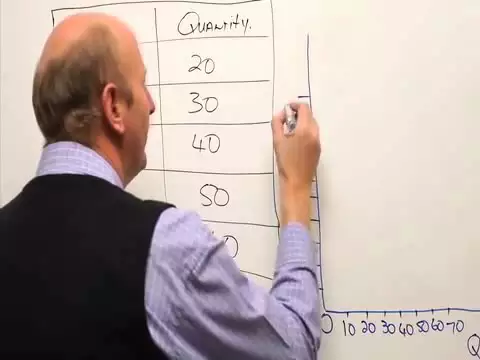 QUANTITY.
20
30
40
50
0
0 10 20 30 40 50 60 70
Q